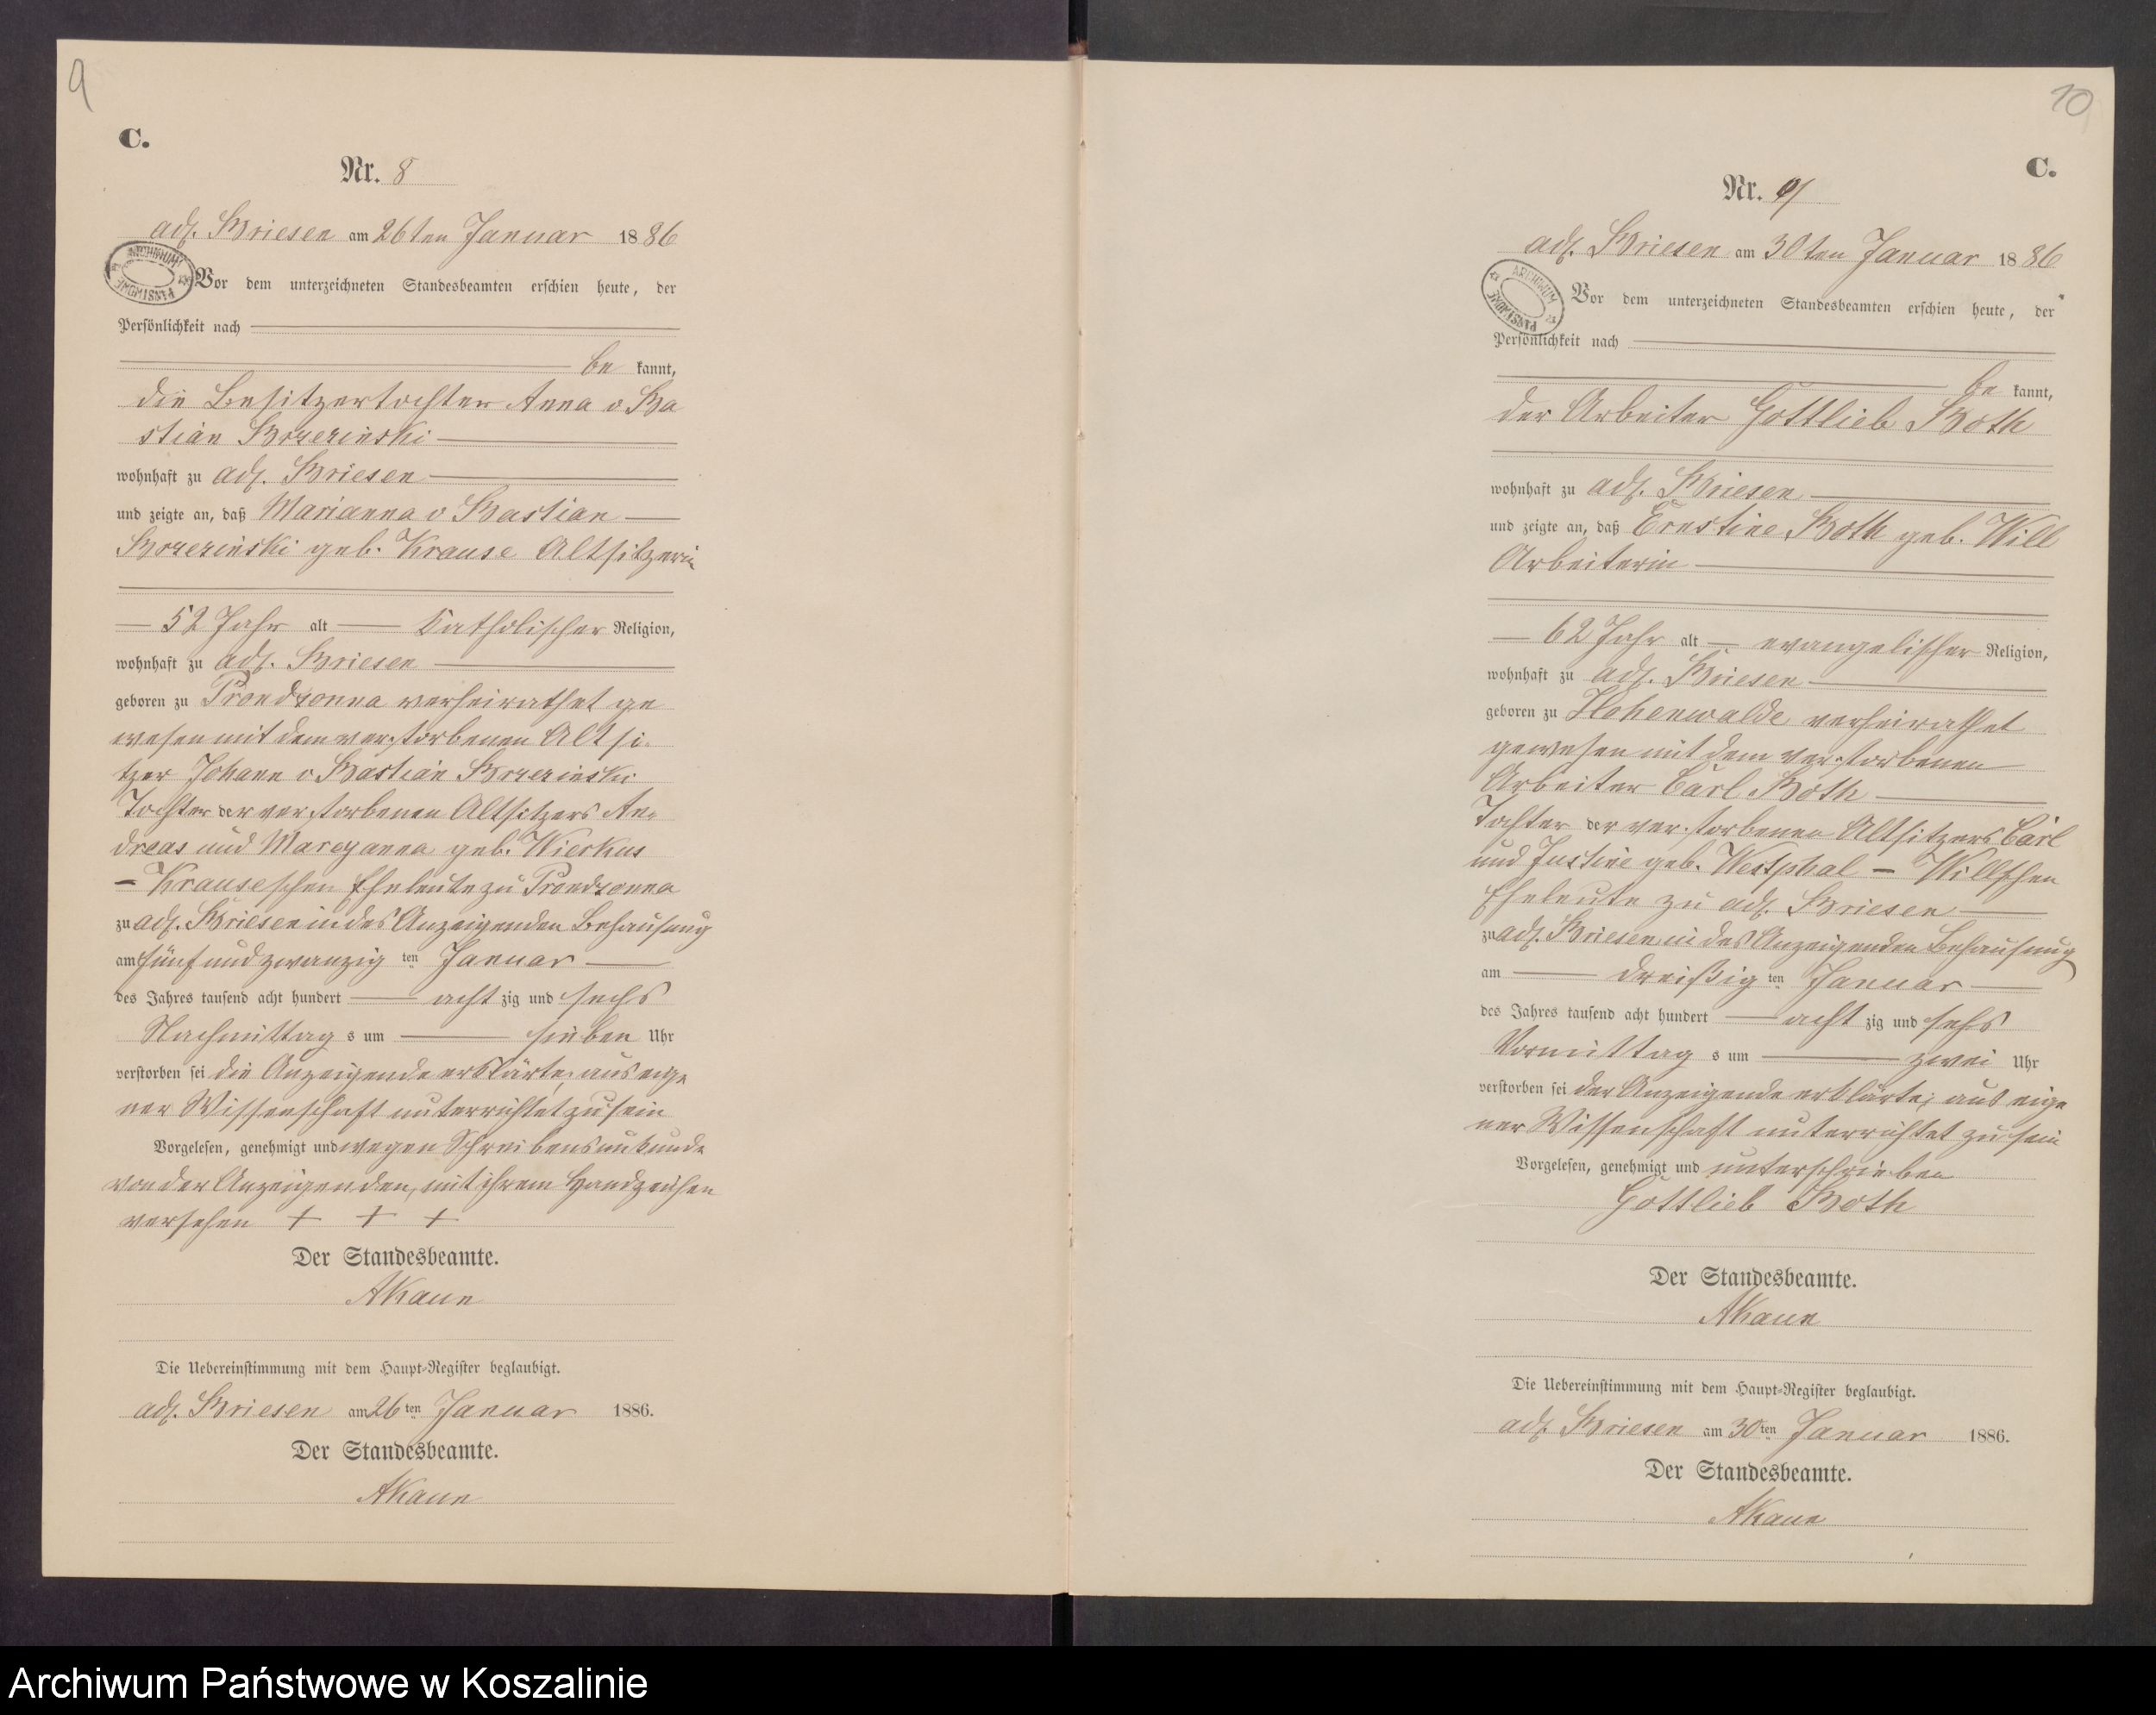 9
C.
Nr. 8
adl. Briesen am 26ten Januar 1886
ARCHIWUM PAŃSTWOWE
Vor dem unterzeichneten Standesbeamten erschien heute, der
Persönlichkeit nach
be kannt,
die Besitzertochter Anna v Ba
stian Brzezinski
wohnhaft zu adl. Briesen
und zeigte an, daß Marianna v Bastian
Brzezinski geb. Krause Altsitzerin
52 Jahr alt Katholischer Religion,
wohnhaft zu adl. Briesen
geboren zu Prondzonna verheirathet ge
wesen mit dem verstorbenen Altsi-
tzer Johann v Bastian Brzezinski
Tochter der verstorbenen Altsitzers An-
dreas und Maryanna geb. Wierkus
– Krauseschen Eheleute zu Prondzonna
zu adl. Briesen in des Anzeigenden Behausung
am fünfundzwanzig ten Januar
des Jahres tausend acht hundert acht zig und sechs
Nachmittag s um sieben Uhr
verstorben sei die Anzeigende erklärte, aus eige
ner Wissenschaft unterrichtet zu sein
Vorgelesen, genehmigt und wegen Schreibensunkunde
von der Anzeigenden, mit ihrem Handzeichen
versehen + + +
Der Standesbeamte.
AKaun
Die Uebereinstimmung mit dem Haupt-Register beglaubigt.
adl. Briesen am 26 ten Januar 1886.
Der Standesbeamte.
AKaun
10
C.
Nr. 9
adl. Briesen am 30ten Januar 1886
ARCHIWUM PAŃSTWOWE
Vor dem unterzeichneten Standesbeamten erschien heute, der
Persönlichkeit nach
be kannt,
der Arbeiter Gottlieb Both
wohnhaft zu adl. Briesen
und zeigte an, daß Ernstine Both geb. Will
Arbeiterin
62 Jahr alt evangelischer Religion,
wohnhaft zu adl. Briesen
geboren zu Hohenwalde verheirathet
gewesen mit dem verstorbenen
Arbeiter Carl Both
Tochter der verstorbenen Altsitzers Carl
und Justine geb. Westphal – Willschen
Eheleute zu adl. Briesen
zu adl. Briesen in des Anzeigenden Behausung
am dreißig ten Januar
des Jahres tausend acht hundert acht zig und sechs
Vormittag s um zwei Uhr
verstorben sei der Anzeigende erklärte; aus eige
ner Wissenschaft unterrichtet zu sein
Vorgelesen, genehmigt und unterschrieben
Gottlieb Both
Der Standesbeamte.
AKaun
Die Uebereinstimmung mit dem Haupt-Register beglaubigt.
adl. Briesen am 30 ten Januar 1886.
Der Standesbeamte.
AKaun
Archiwum Państwowe w Koszalinie